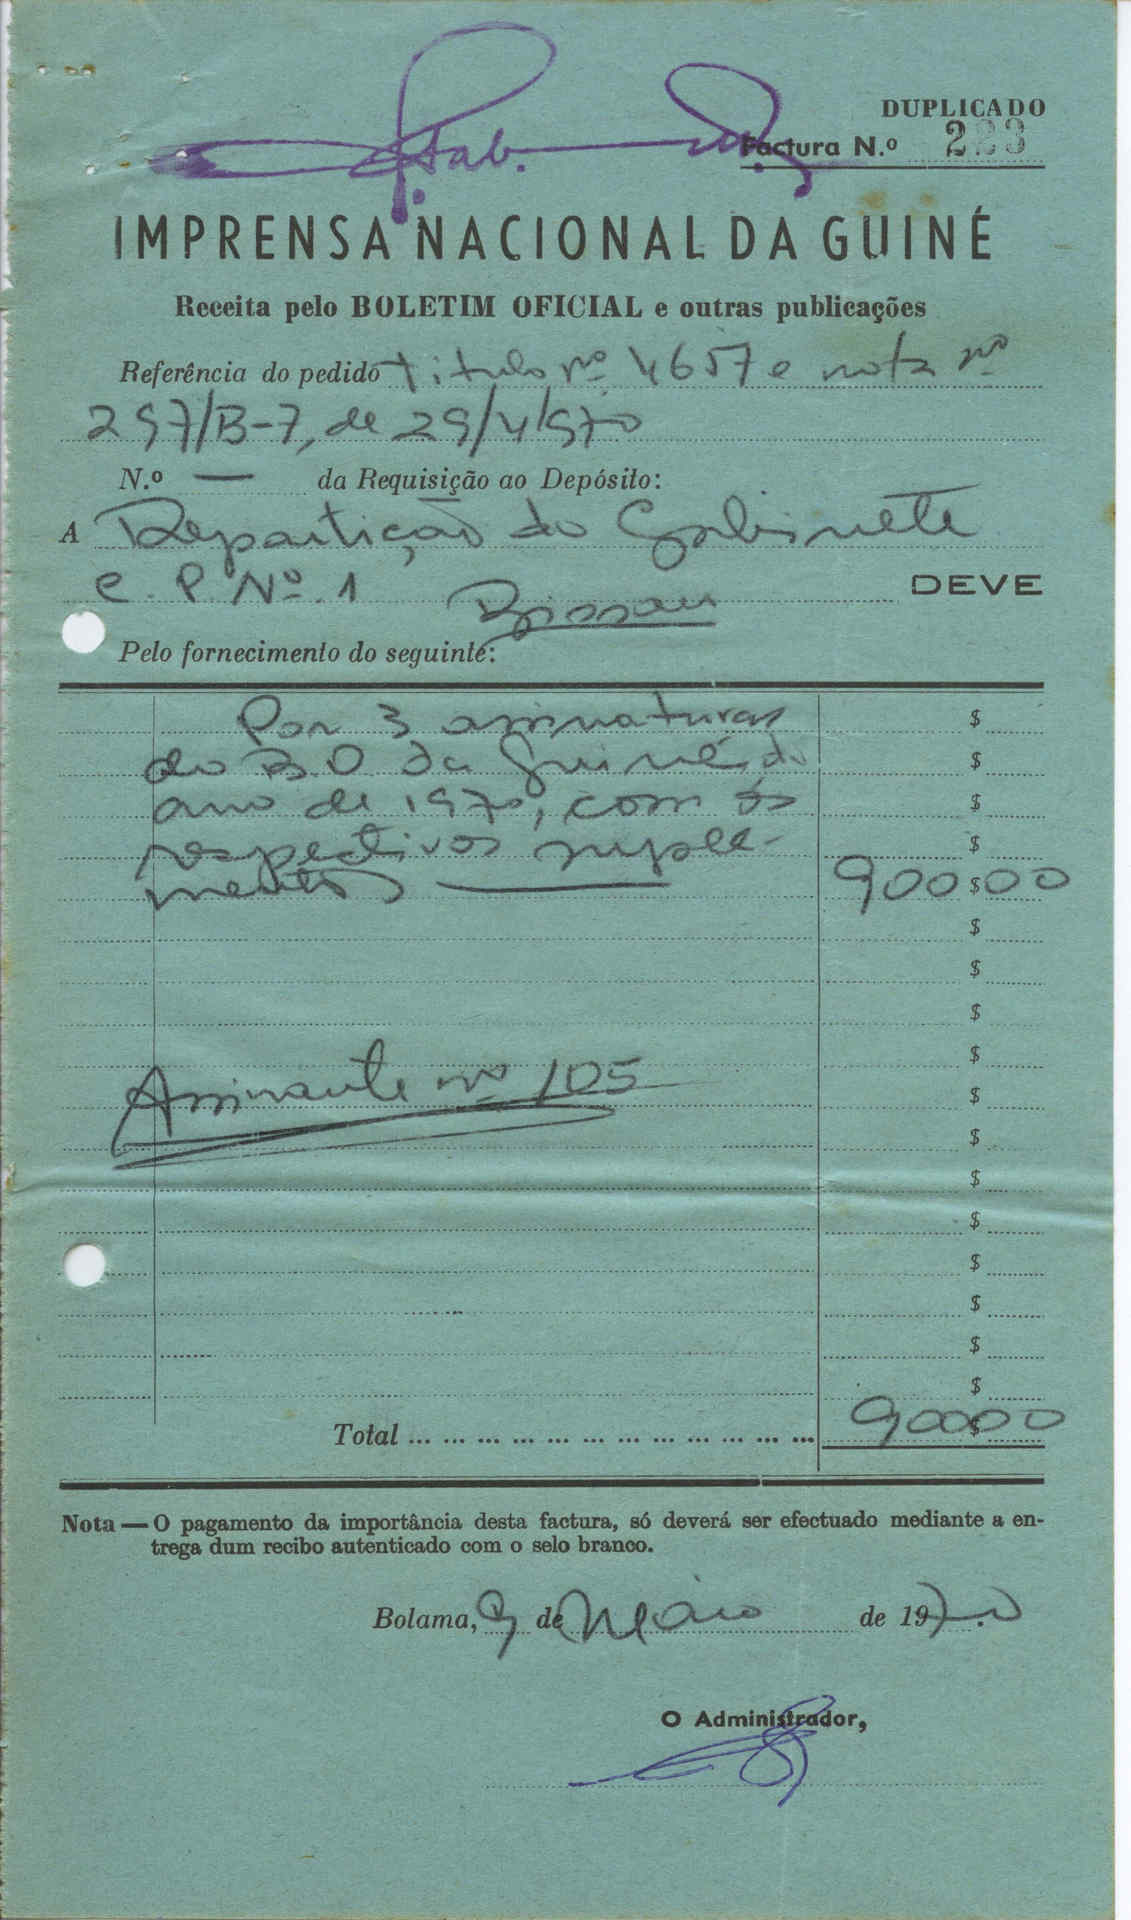 DUPLICADO
Factura N.º 223
Gab.
IMPRENSA NACIONAL DA GUINÉ
Receita pelo BOLETIM OFICIAL e outras publicações
Referência do pedido titulo nº 4657 e nota nº
297/B-7, de 29/4/970
N.º — da Requisição ao Depósito:
A Repartição do Gabinete
C. P. Nº. 1 Bissau DEVE
Pelo fornecimento do seguinte:
Por 3 assinaturas $
do B.O da Guiné, do $
ano de 1970, com os $
respectivos suple- $
mentos 900$00
$
$
$
$
Assinante nº 105 $
$
$
$
$
$
$
$
Total ... ... ... ... ... ... ... ... ... ... ... ... 900$00
Nota — O pagamento da importância desta factura, só deverá ser efectuado mediante a en-
trega dum recibo autenticado com o selo branco.
Bolama, 9 de Maio de 1970.
O Administrador,